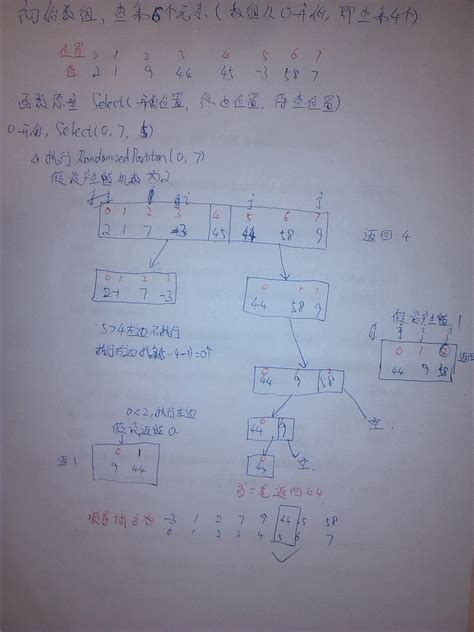 初始数组,查第6个元素(数组从0开始,即查第4个)
位置 0 1 2 3 4 5 6 7
值 2 1 9 44 45 -3 58 7
函数原型 Select(开始位置,终止位置,待查位置)
0开始,Select(0, 7, 5)
△执行RandomizedPartition(0, 7)
假设产生随机数为2
i j j
0 1 2 3 4 5 6 7
2 1 7 -3 45 44 58 9
返回 4
2 1 7 -3
44 58 9
5>4左边不执行
执行右边找第(5-4-1)=0个
假设产生 1
0 1 2
44 9 58
返回
44 9 58
0<2,执行左边
假设返回 0
44 9
空
0 1
9 44
返1
44
空
首=尾返回44
顺序 -3 1 2 7 9 44 45 58
0 1 2 3 4 5 6 7